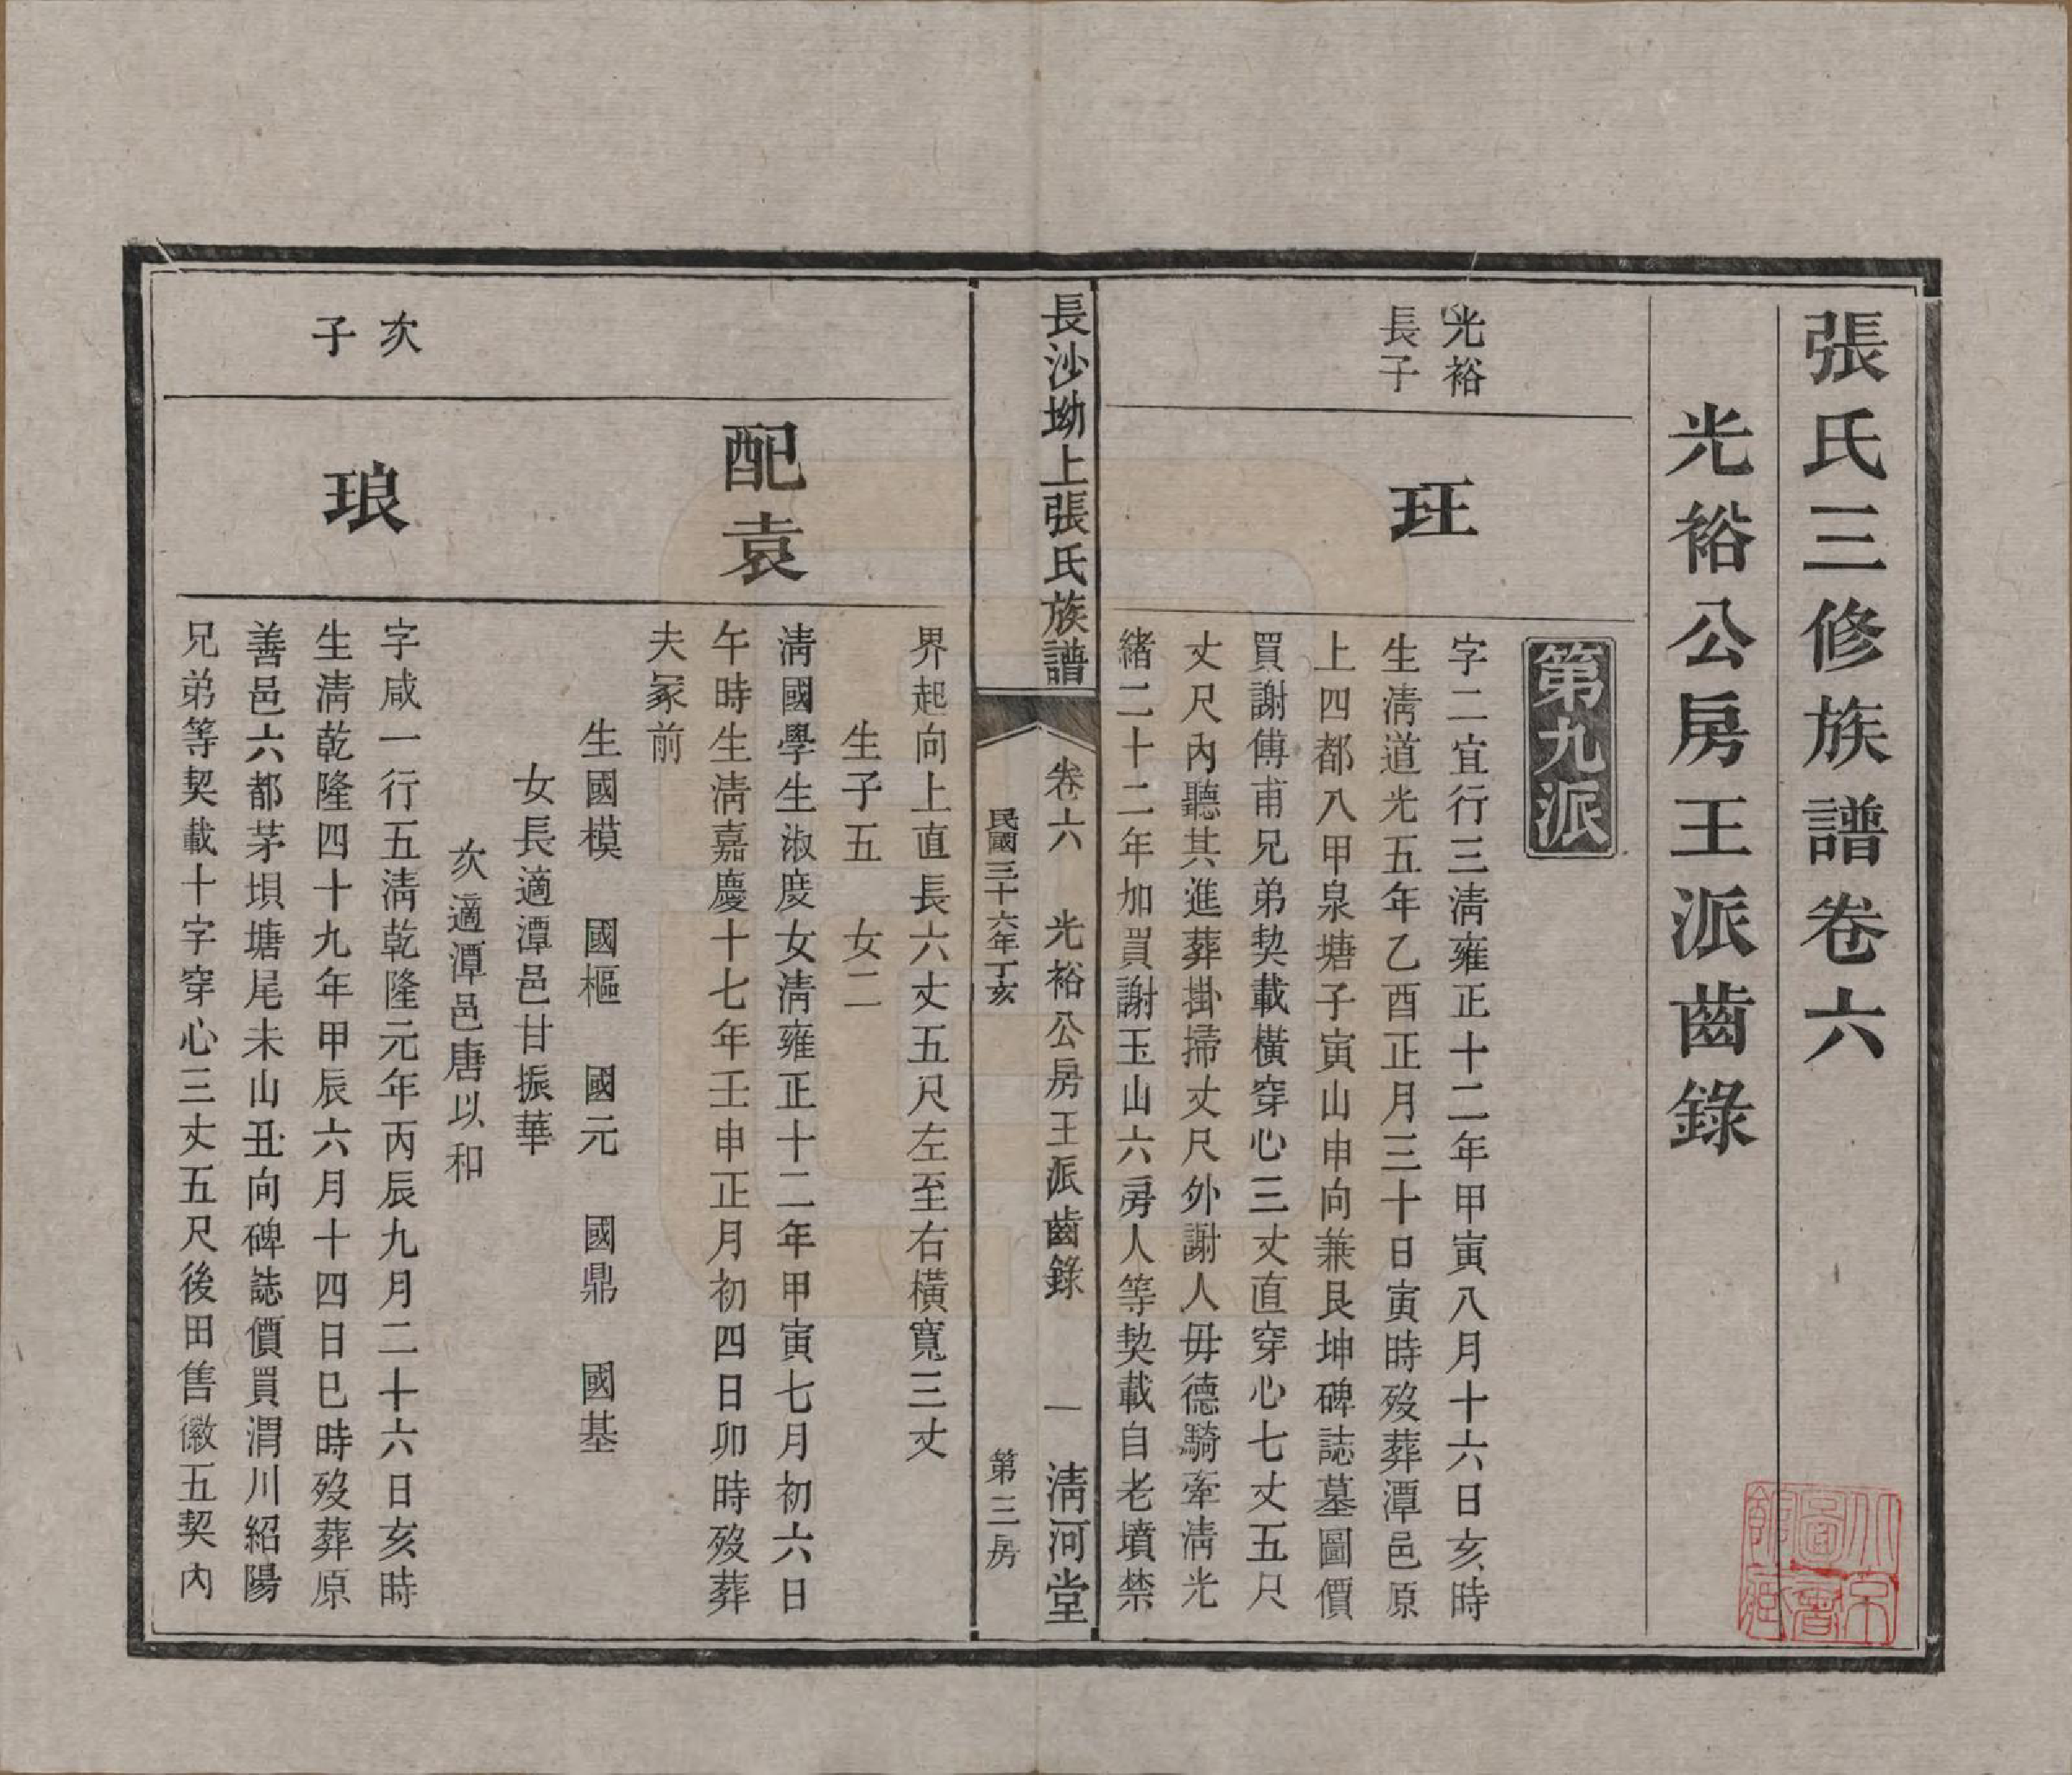 張氏三修族譜卷六
光裕公房王派齒錄
第九派
光裕
長子
玨
字二宜行三淸雍正十二年甲寅八月十六日亥時
生淸道光五年乙酉正月三十日寅時歿葬潭邑原
上四都八甲泉塘子寅山申向兼艮坤碑誌墓圖價
買謝傅甫兄弟契載橫穿心三丈直穿心七丈五尺
丈尺內聽其進葬掛掃丈尺外謝人毋德騎牽淸光
緒二十二年加買謝玉山六房人等契載自老墳禁
長沙坳上張氏族譜
卷六 光裕公房王派齒錄 一 淸河堂
民國三十六年丁亥 第三房
界起向上直長六丈五尺左至右橫寬三丈
生子五 女二
配袁
淸國學生淑度女淸雍正十二年甲寅七月初六日
午時生淸嘉慶十七年壬申正月初四日卯時歿葬
夫冢前
生國模 國樞 國元 國鼎 國基
女長適潭邑甘振華
次適潭邑唐以和
次
子
琅
字咸一行五淸乾隆元年丙辰九月二十六日亥時
生淸乾隆四十九年甲辰六月十四日巳時歿葬原
善邑六都茅垻塘尾未山丑向碑誌價買渭川紹陽
兄弟等契載十字穿心三丈五尺後田售徽五契內
北京
圖書
館藏